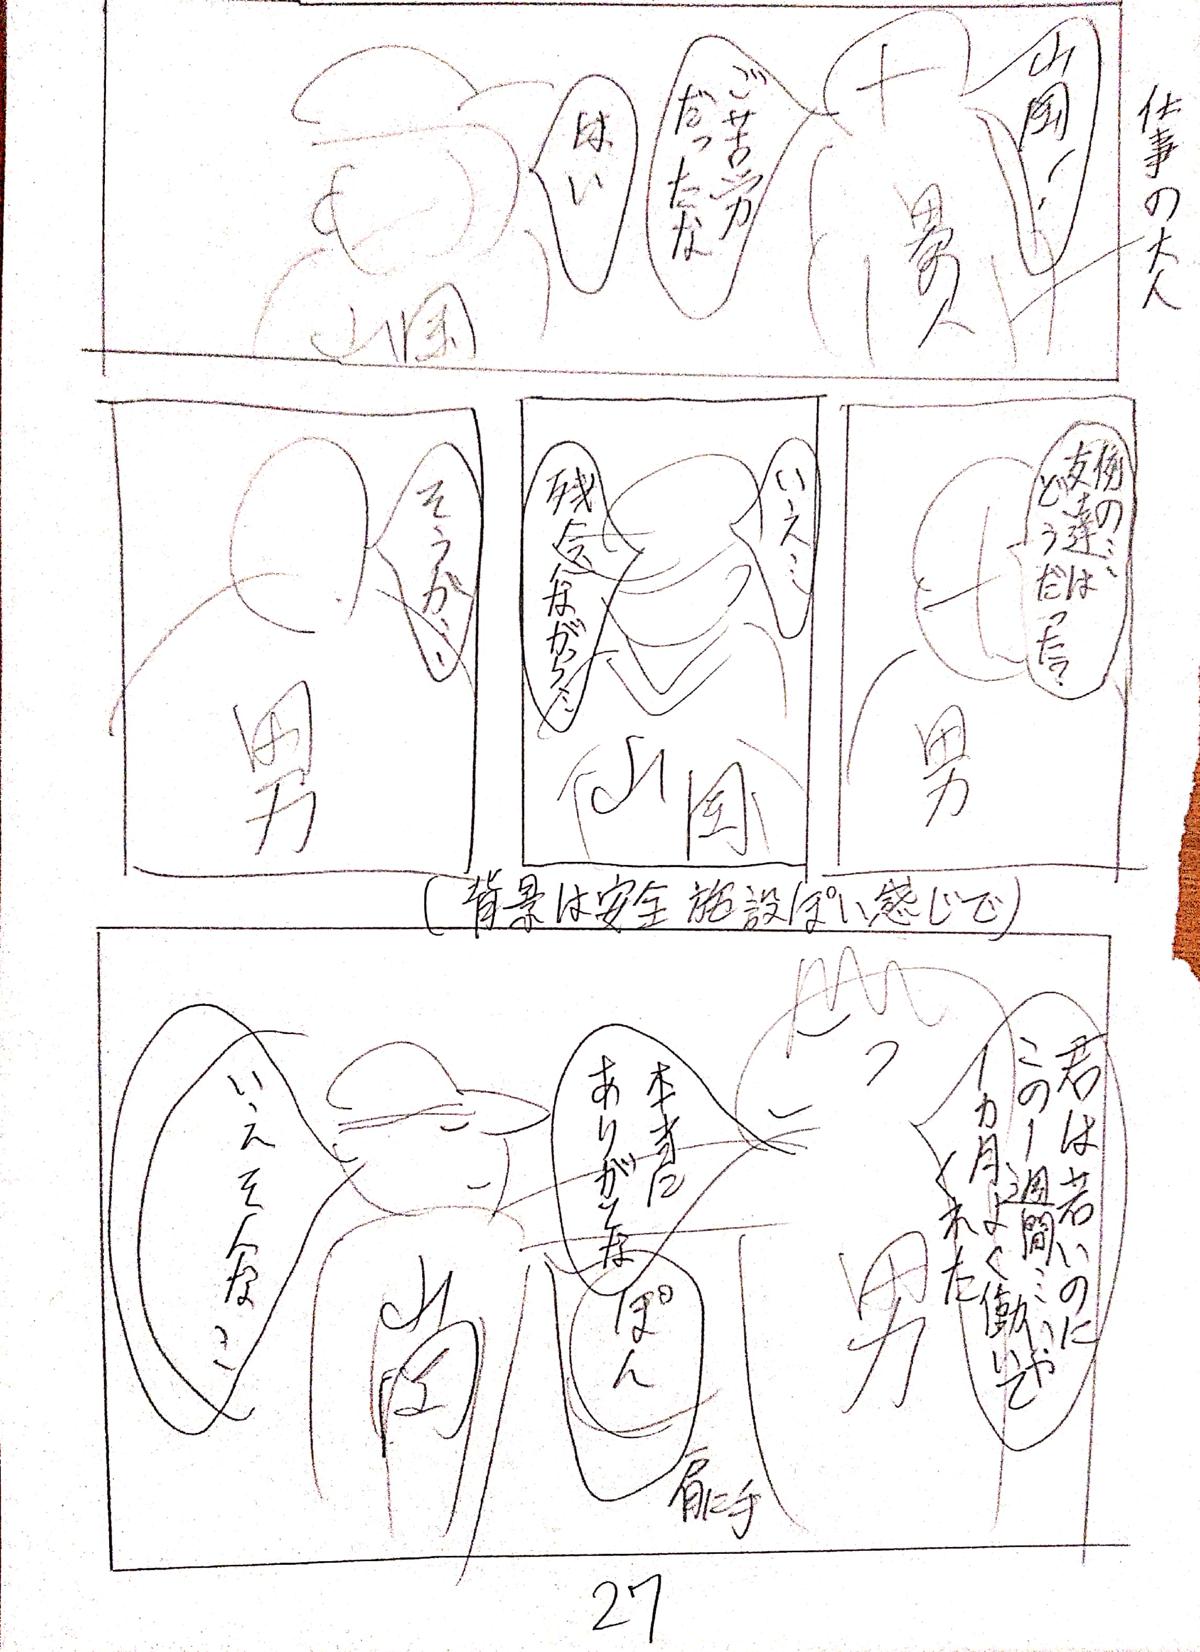 仕事の大人
山岡・・・
男の人
ご苦労
だったな
はい
山岡
例の…
友達は
どうだった?
男
いえ…
残念ながら…
山岡
そうか…
男
(背景は安全施設ぽい感じで)
君は若いのに
この1週間…いや
1カ月よく働いて
くれた
男
本当に
ありがとな
ぽん
肩に手
山岡
いえそんな
27